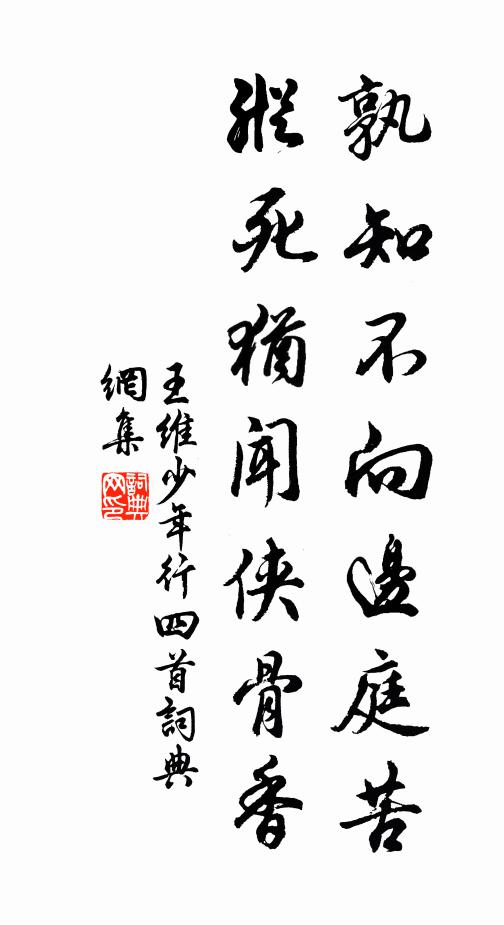 孰知不向邊庭苦
縱死猶聞俠骨香
王維少年行四首詞典
網集
詞典
网印